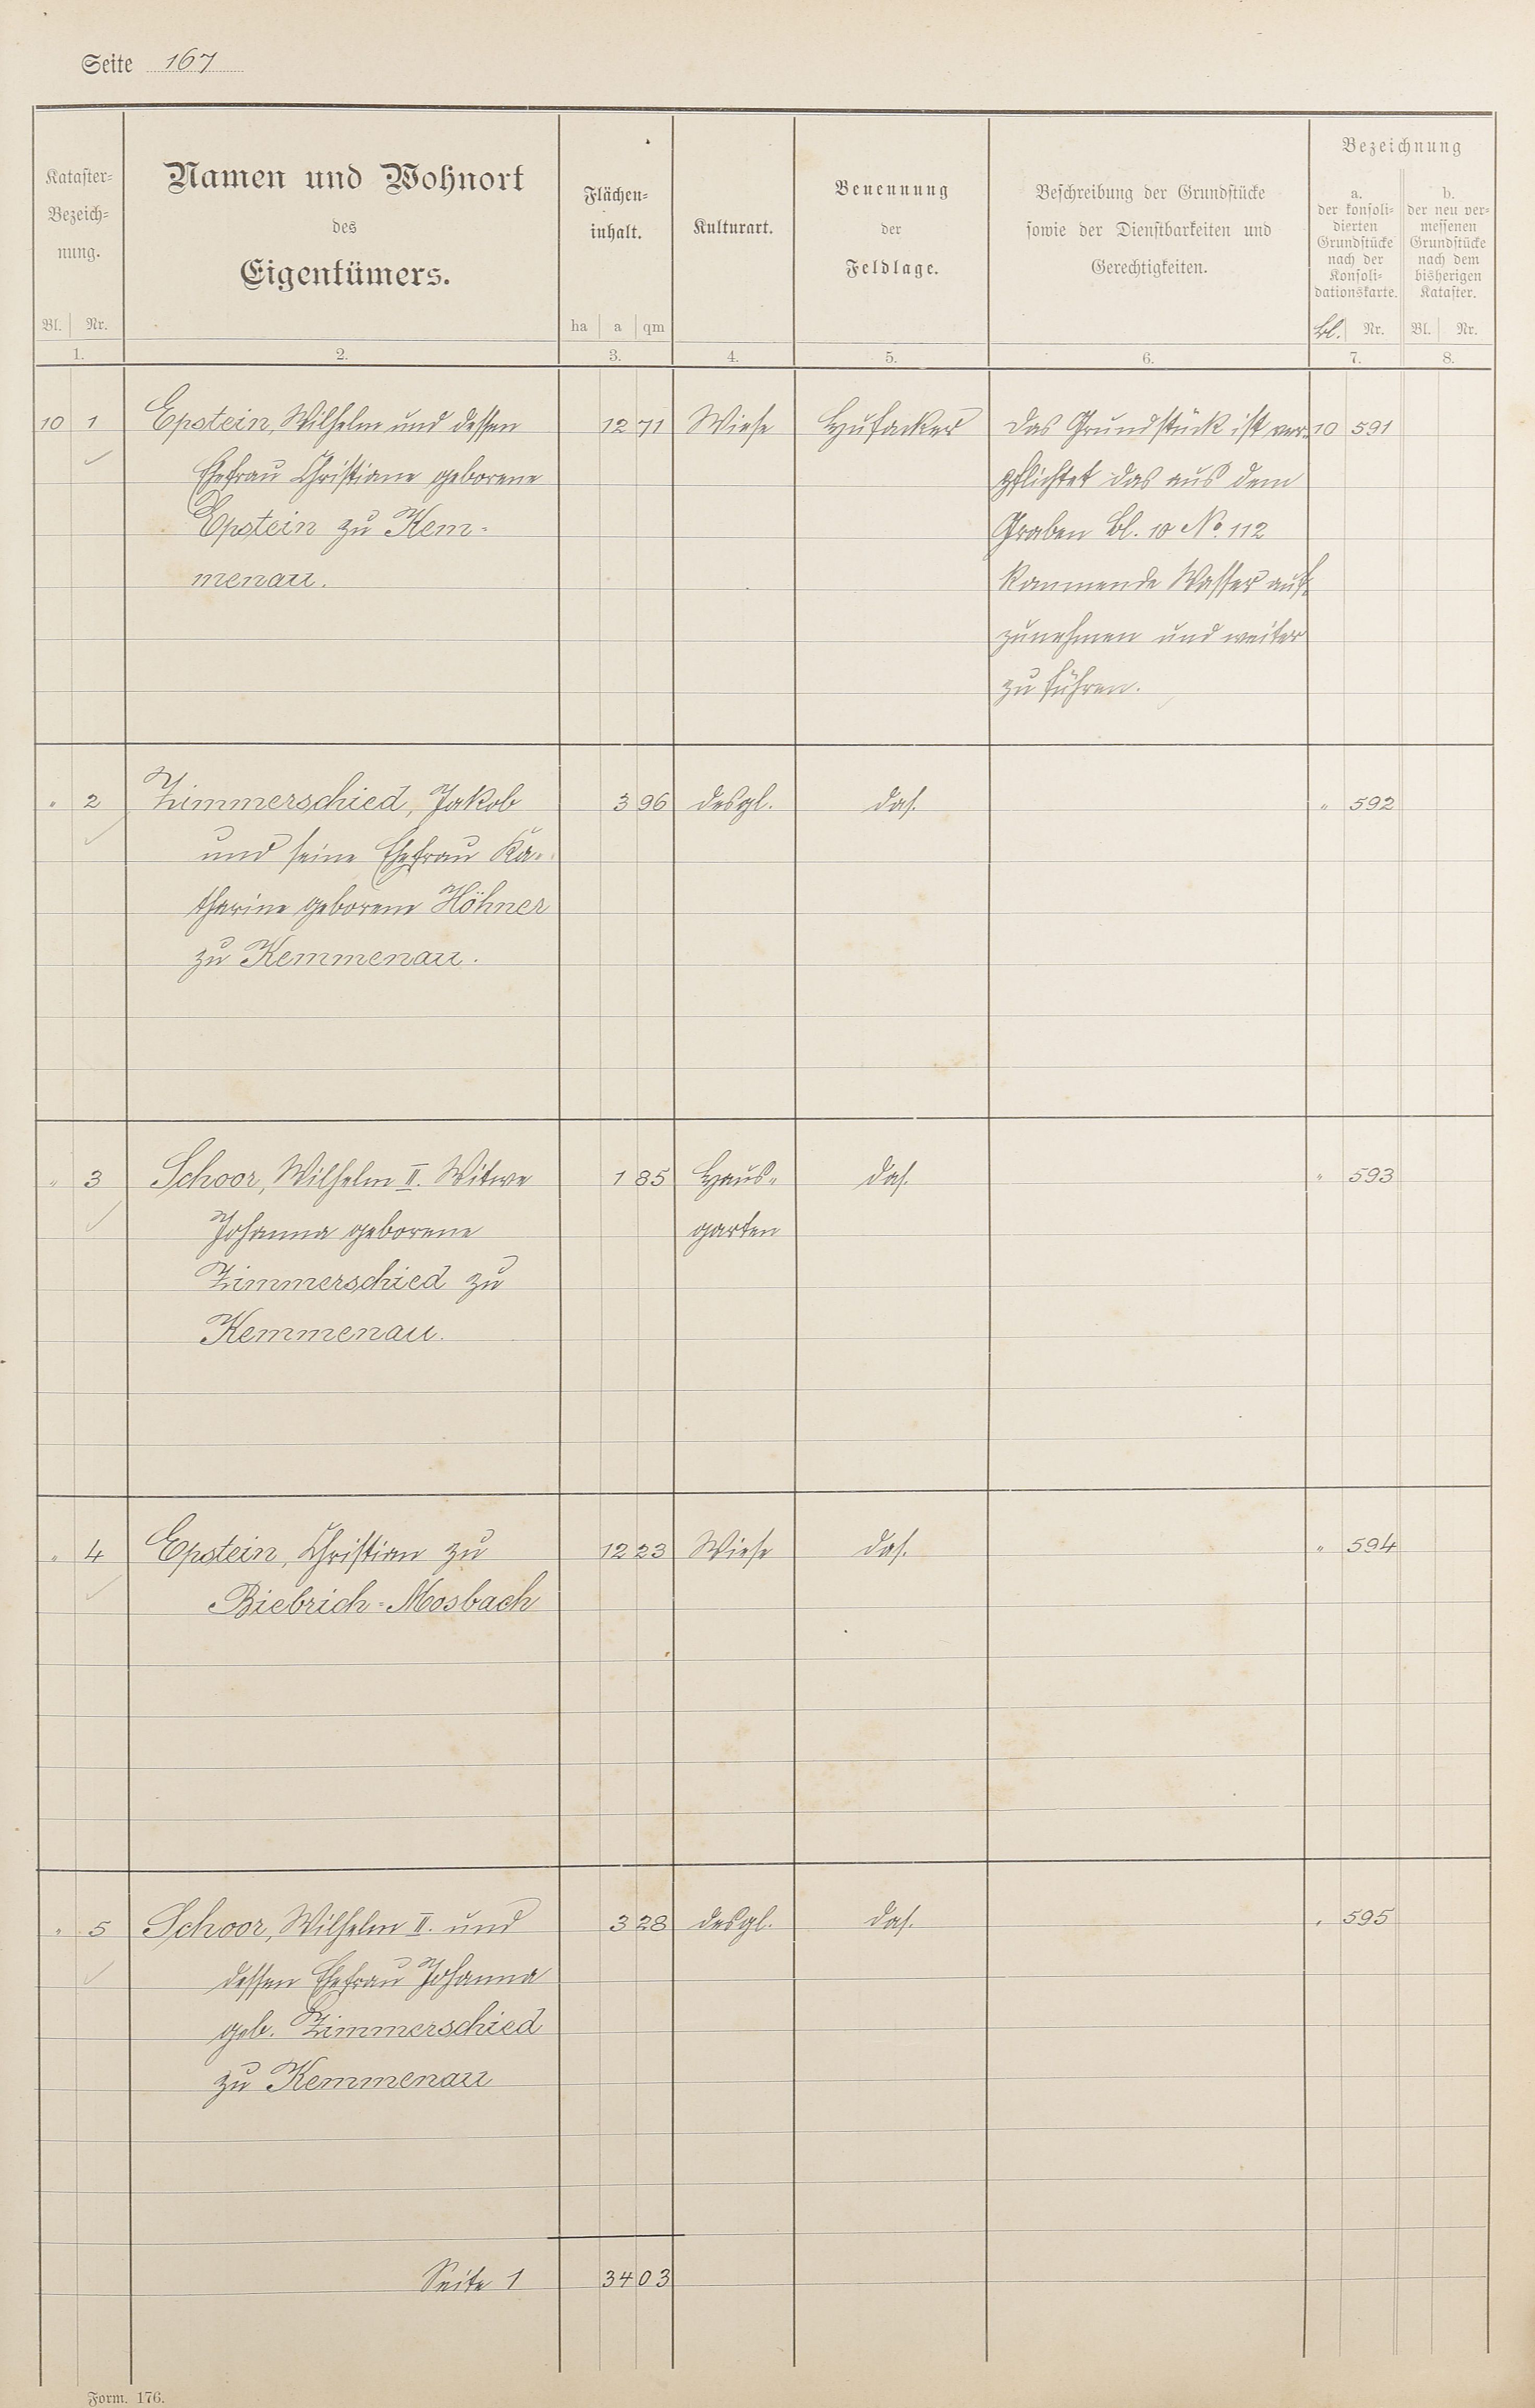 Seite 167
Kataster-
Bezeich-
nung.
Bl. Nr.
1.
Namen und Wohnort
des
Eigentümers.
2.
Flächen-
inhalt.
ha a qm
3.
Kulturart.
4.
Benennung
der
Feldlage.
5.
Beschreibung der Grundstücke
sowie der Dienstbarkeiten und
Gerechtigkeiten.
6.
Bezeichnung
a.
der konsoli-
dierten
Grundstücke
nach der
Konsoli-
dationskarte.
Bl. Nr.
7.
b.
der neu ver-
messenen
Grundstücke
nach dem
bisherigen
Kataster.
Bl. Nr.
8.
10 1 Epstein, Wilhelm und dessen 12 71 Wiese Hufacker Das Grundstück ist ver- 10 591
Ehefrau Christiane geborene pflichtet das aus dem
Epstein zu Kem- Graben Bl. 10 No. 112
menau. kommende Wasser auf-
zunehmen und weiter
zu führen.
" 2 Zimmerschied, Jakob 3 96 desgl. das. " 592
und seine Ehefrau Ka-
tharine geborene Höhner
zu Kemmenau.
" 3 Schoor, Wilhelm II. Witwe 1 85 Haus- das. " 593
Johanna geborene garten
Zimmerschied zu
Kemmenau.
" 4 Epstein, Christian zu 12 23 Wiese das. " 594
Biebrich-Mosbach
" 5 Schoor, Wilhelm II. und 3 28 desgl. das. " 595
dessen Ehefrau Johanna
geb. Zimmerschied
zu Kemmenau
Seite 1 34 03
Form. 176.